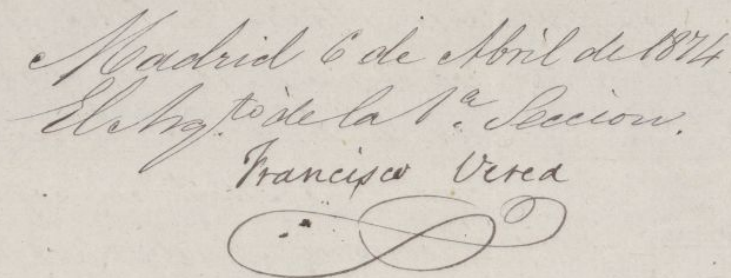 Madrid 6 de Abril de 1874
El Arq.to de la 1.a Seccion.
Francisco Verea